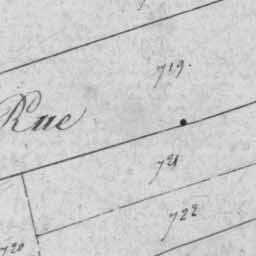 719.
Rue
721
722
720